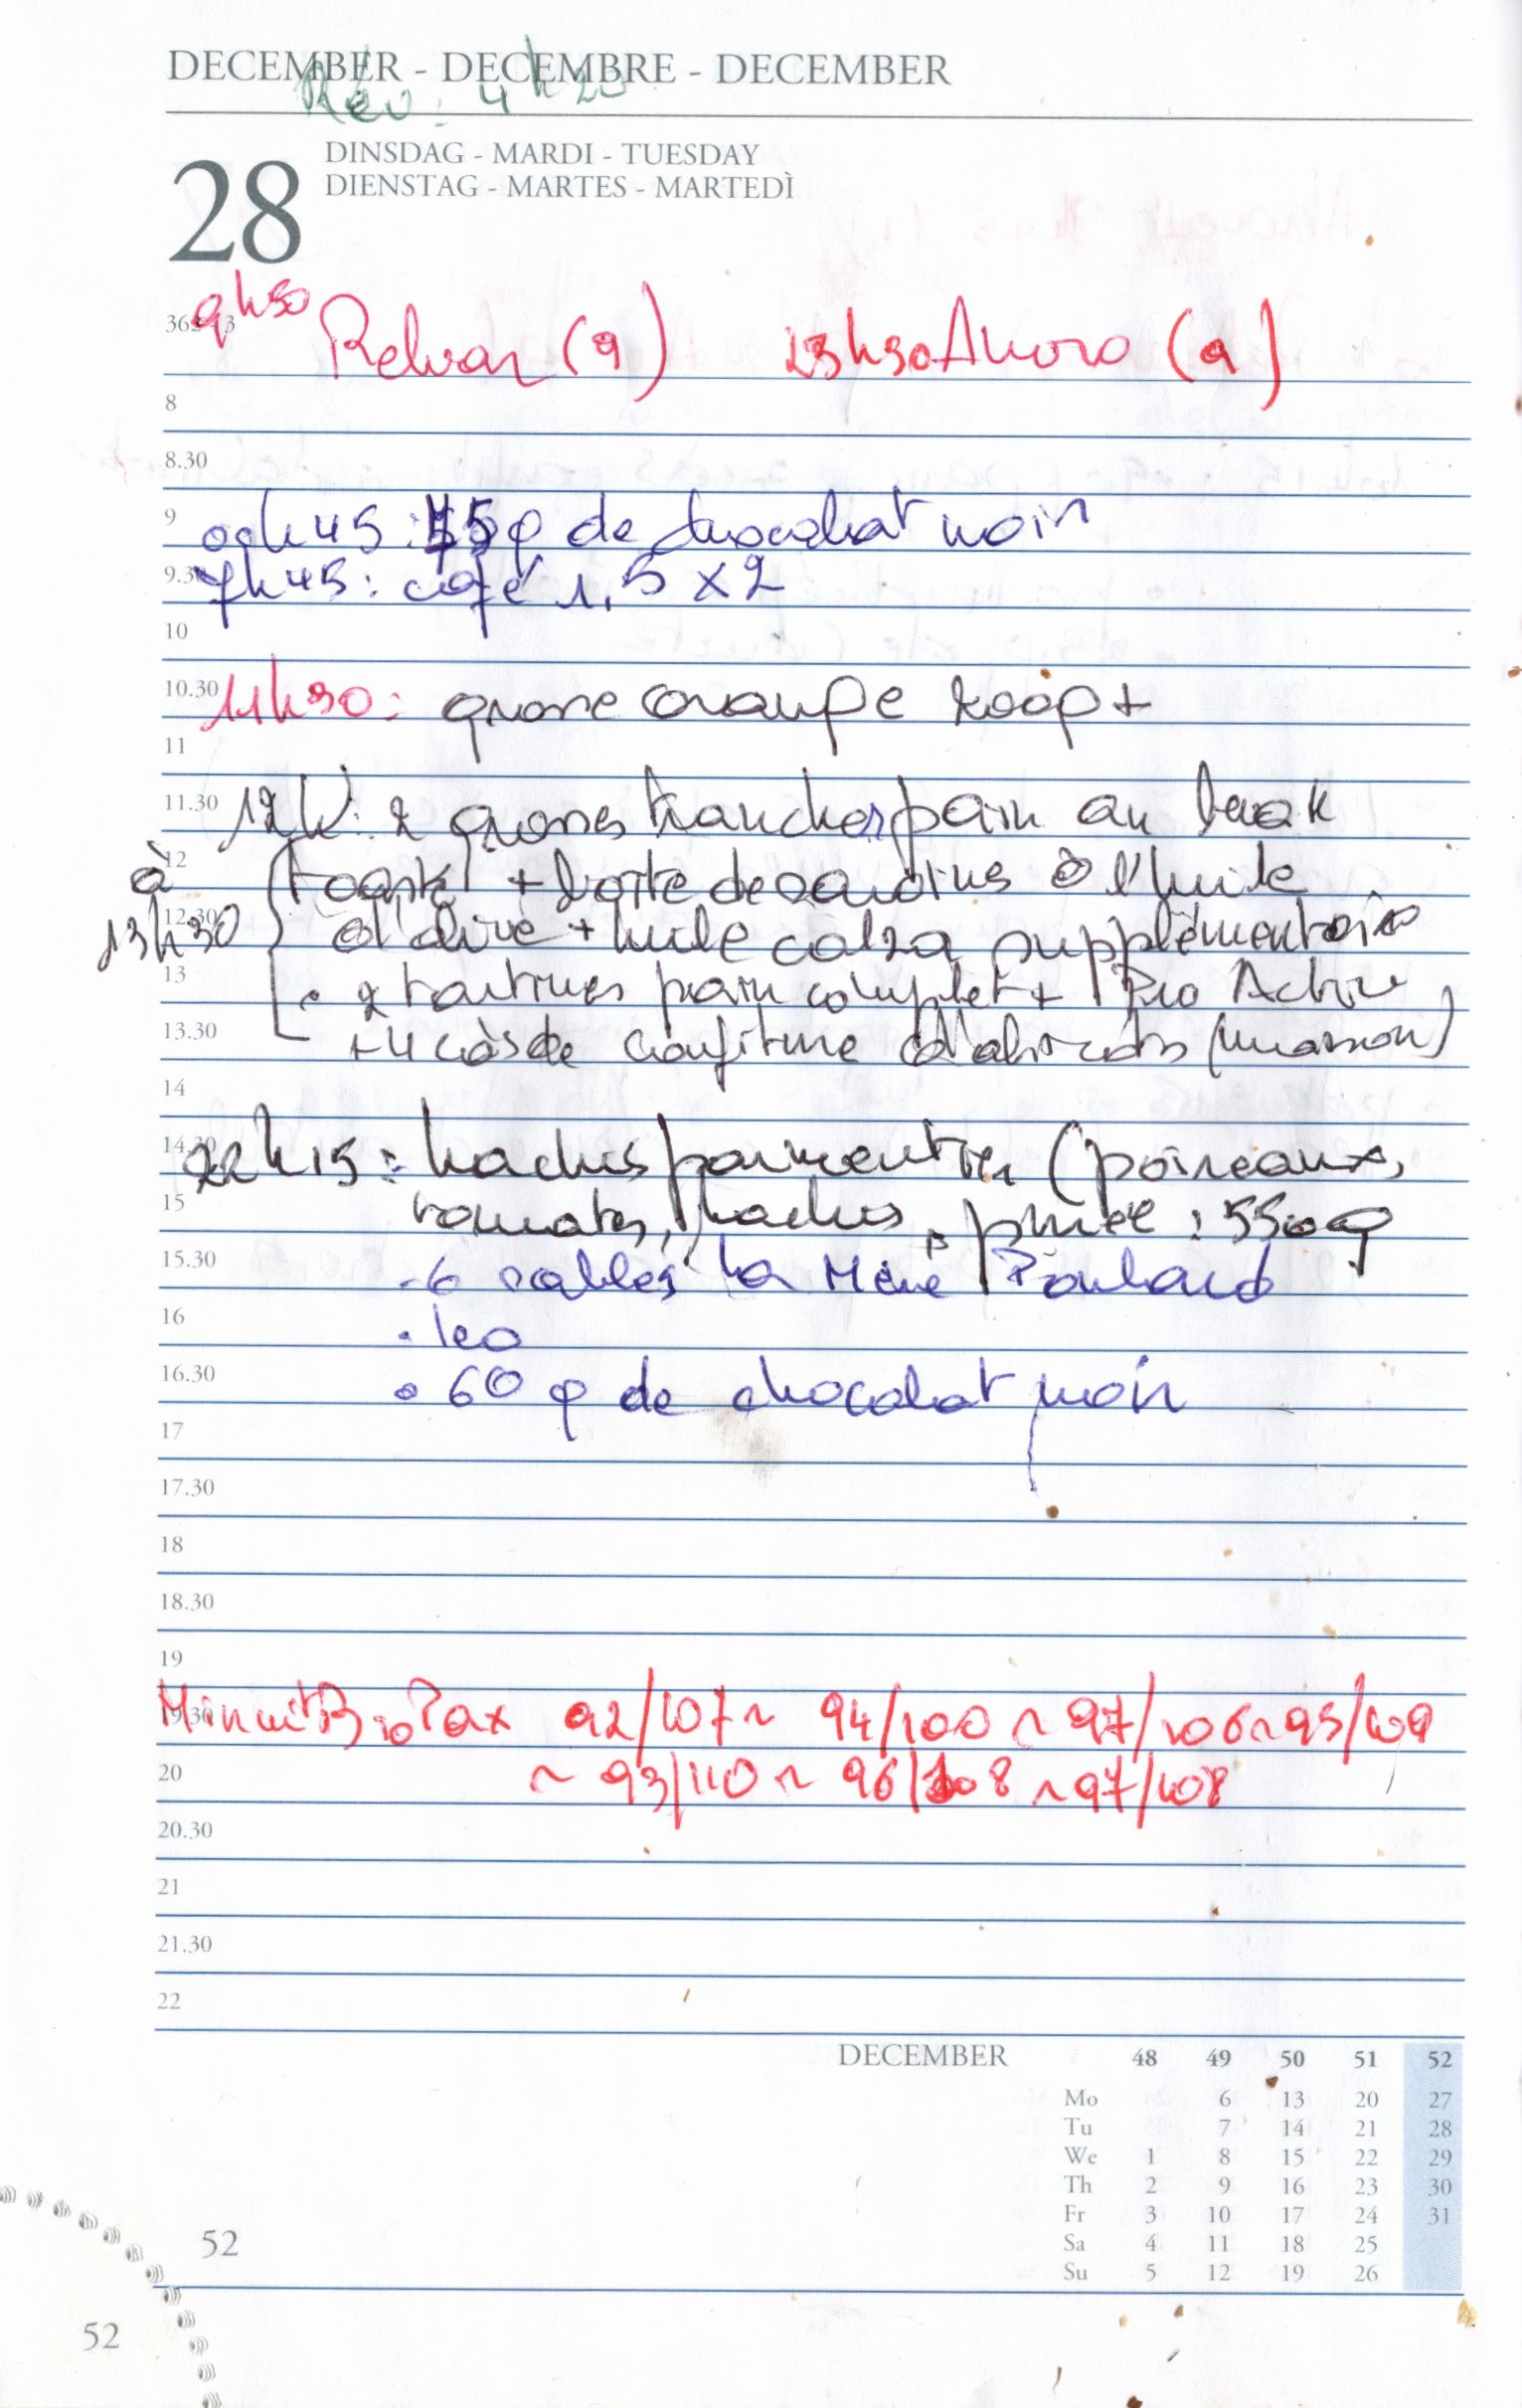 DECEMBER - DECEMBRE - DECEMBER
Rév: 4h20
28
DINSDAG - MARDI - TUESDAY
DIENSTAG - MARTES - MARTEDÌ
9h50 Relvar (9) 23h30 Anoro (9)
8
8.30
9
09h45: 55g de chocolat noir
7h45: café 1,5 x 2
10
10.30
11h30: grosse orange 400g +
11
11.30
12h: 2 grosses tranches pain au
12
à
toasté + boîte de sardines à l'huile
13h30
12.30
d'olive + huile colza supplémentaire
13
• 2 tartines pain complet + Pro Active
13.30
+ 4 càs de confiture d'abricots (maison)
14
14.30
22h15: hachis parmentier (poireaux,
15
tomates, hachis, purée: 550g
15.30
. 6 sablés La Mère Poulard
16
. leo
16.30
• 60 g de chocolat noir
17
17.30
18
18.30
19
19.30
Minuit 92/107 ~ 94/100 ~ 97/106 ~ 95/109
20
~ 93/110 ~ 96/108 ~ 97/108
20.30
21
21.30
22
DECEMBER 48 49 50 51 52
Mo 6 13 20 27
Tu 7 14 21 28
We 1 8 15 22 29
Th 2 9 16 23 30
Fr 3 10 17 24 31
Sa 4 11 18 25
Su 5 12 19 26
52
52